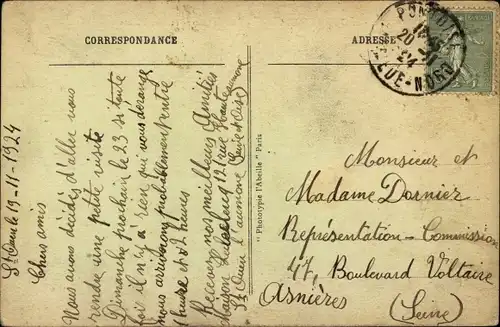 CORRESPONDANCE
St Ouen le 19-11-1924
Chers amis
Nous avons décidés d'aller vous
rendre une petite visite
Dimanche prochain le 23 si toute
fois il n'y a rien qui vous dérange
nous arriverons probablement entre
1 heure et 2 heures
Recevez nos meilleurs Amitiés
Maison 12 rue Haute aumone
St Ouen l'aumone (Seine et Oise)
"Phototypie l'Abeille" Paris
ADRESSE
20 -11
24
RUE-NORD
Monsieur et
Madame Dornier
Représentation - Commission
47, Boulevard Voltaire
Asnières
(Seine)